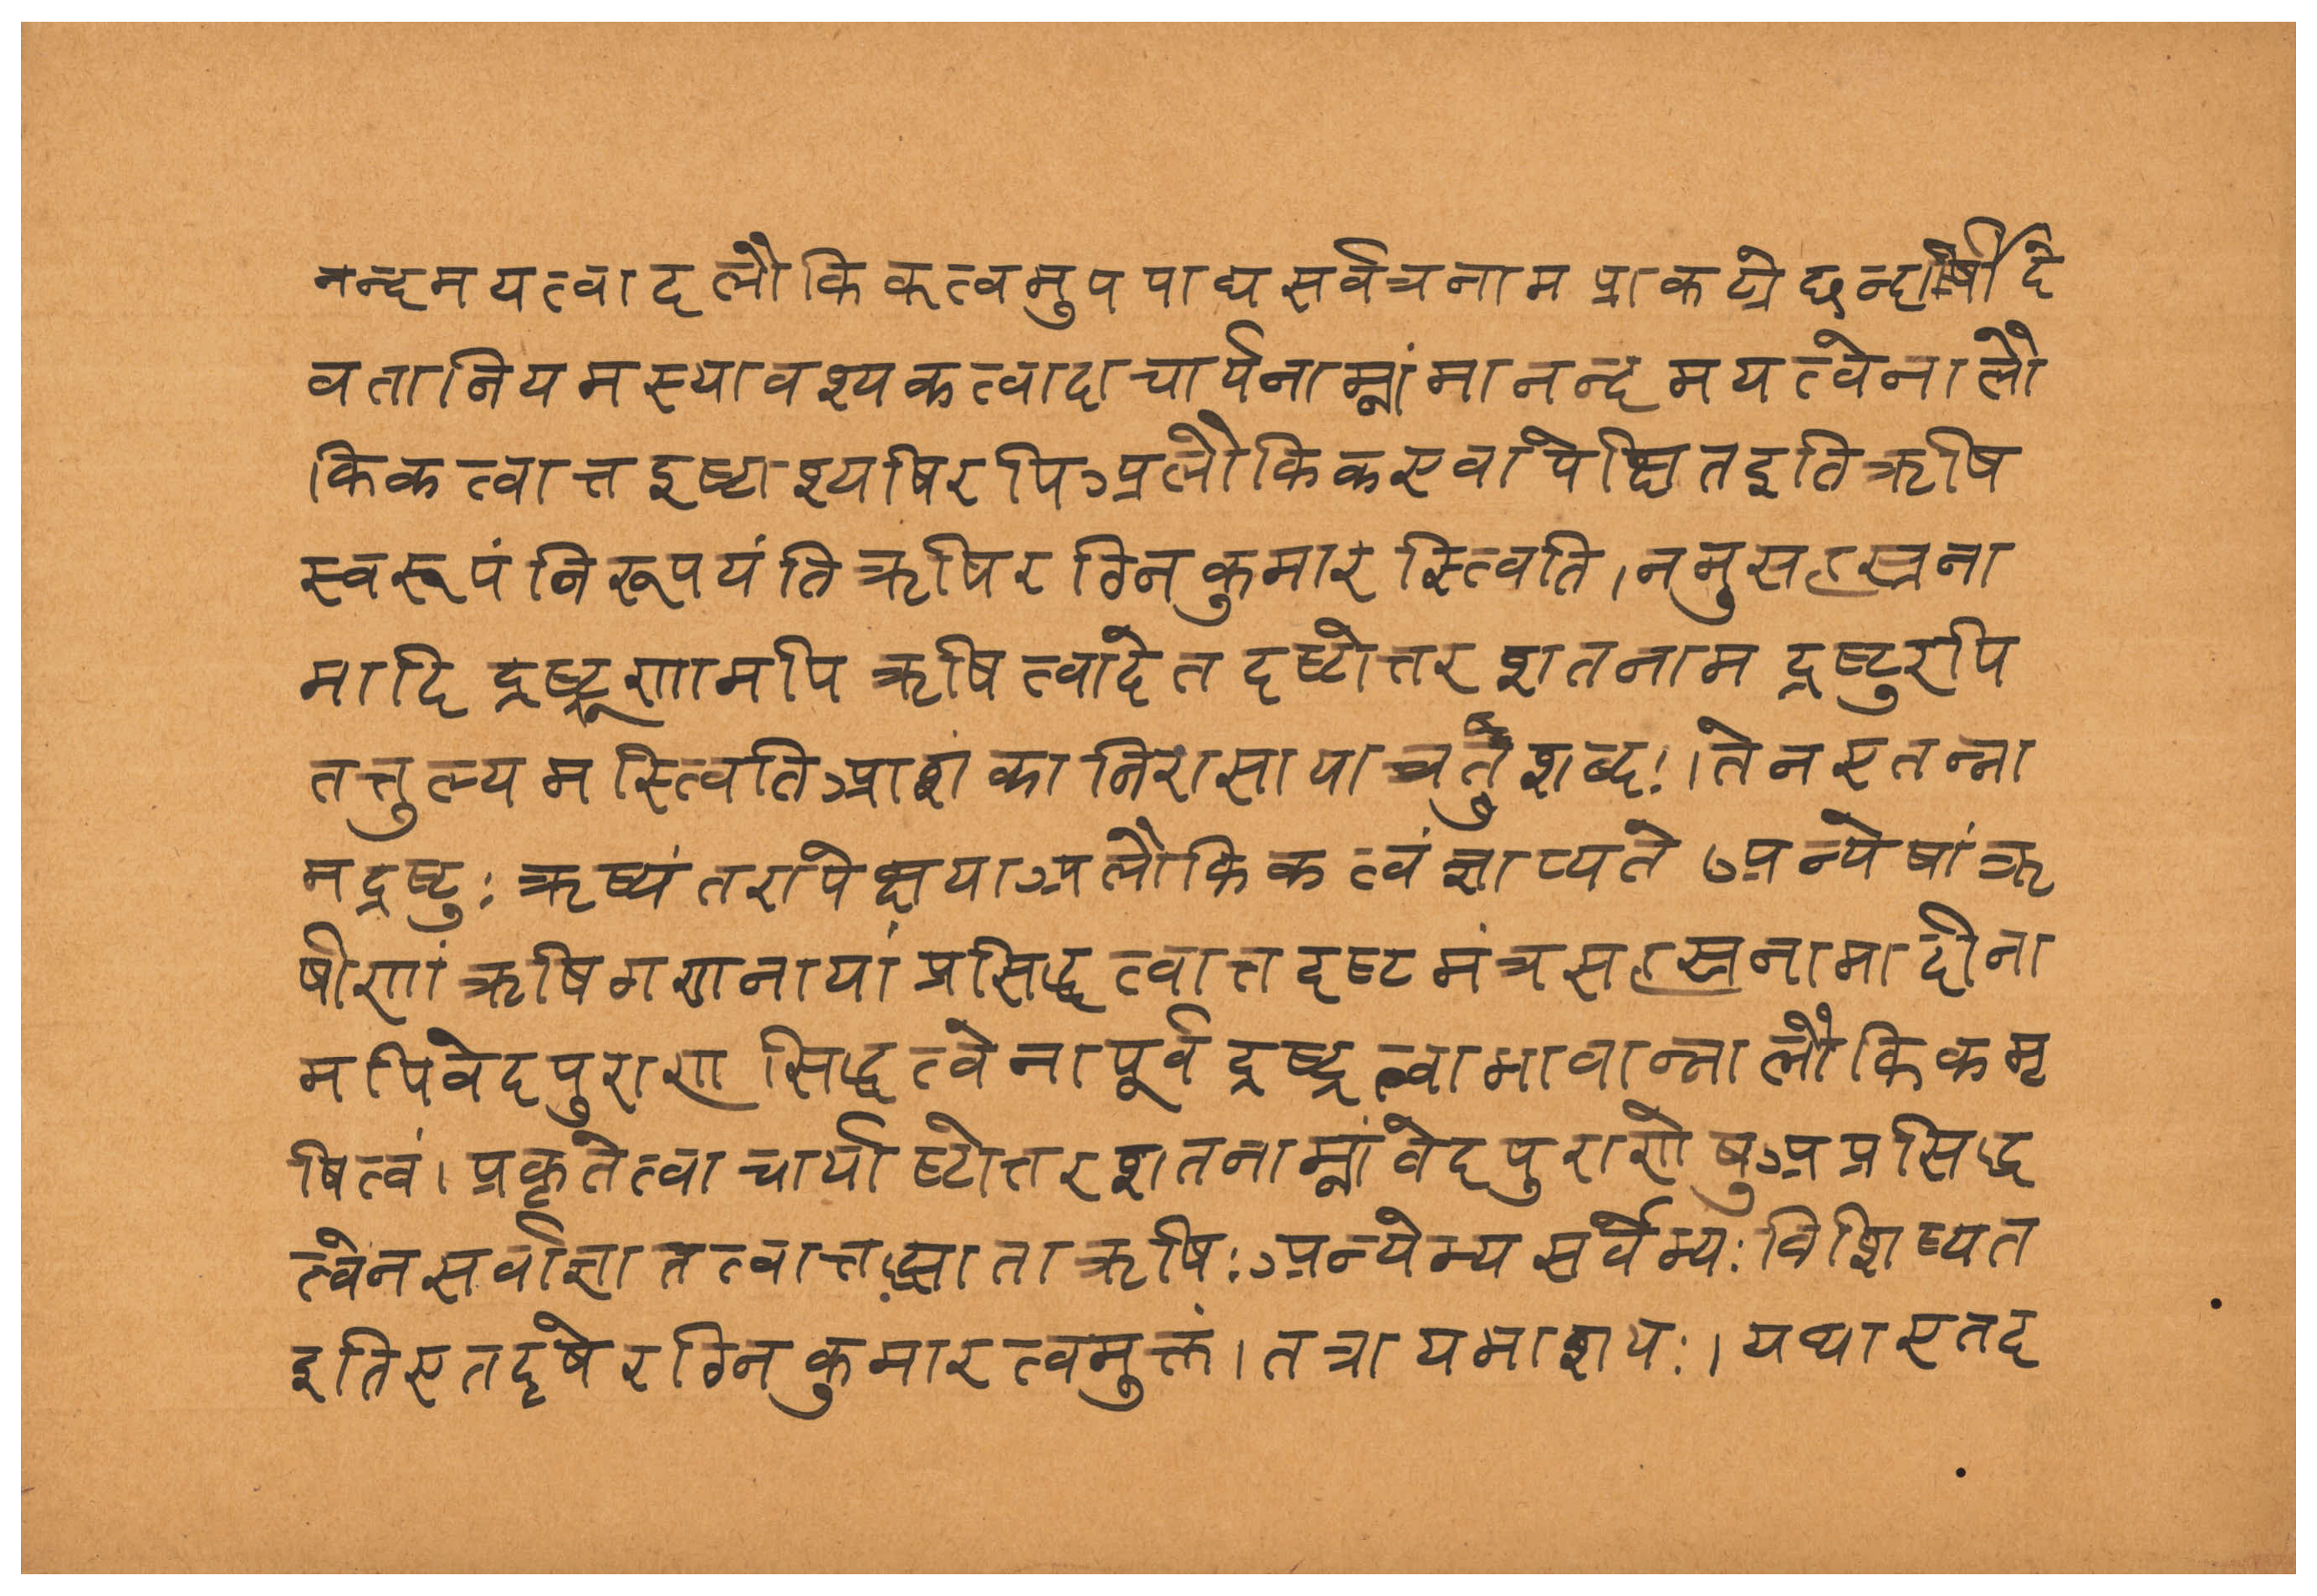 नन्दमयत्वादलौकिकत्वमुपपाद्य सर्वत्र नाम प्राकट्ये छन्दोर्षी दे
वता नियमस्यावश्यकत्वादाचार्यनाम्नांमानन्दमयत्वेनालौ
किकत्वात्तद्दष्टाश्यषिरपि अलौकिक एवापेक्षित इति ऋषि
स्वरूपं निरूपयंति ऋषिरग्निकुमारस्त्विति । ननु सहस्रना
मादि द्रष्ट्रूणामपि ऋषित्वादेतदष्टोत्तरशतनाम द्रष्टुरपि
तत्तुल्यमस्त्विति आशंका निरासाया च तु शब्दः । तेन एतन्ना
मद्रष्टुः ऋष्यंतरापेक्षया अलौकिकत्वं ज्ञाप्यते अन्येषां ऋ
षीणां ऋषिगणनायां प्रसिद्धत्वात्तद्दष्टमंत्रसहस्रनामादीना
मपि वेदपुराणसिद्धत्वेनापूर्वद्रष्ट्रत्वाभावान्नालौकिकमृ
षित्वं । प्रकृते त्वाचार्याष्टोत्तरशतनाम्नां वेदपुराणेषु अप्रसिद्ध
त्वेन सर्वाज्ञातत्वात्तद्ज्ञाता ऋषिः अन्येभ्य सर्वेभ्यः विशिष्यत
इति एतदृषेरग्निकुमारत्वमुक्तं । तत्रायमाशयः । यथा एतद